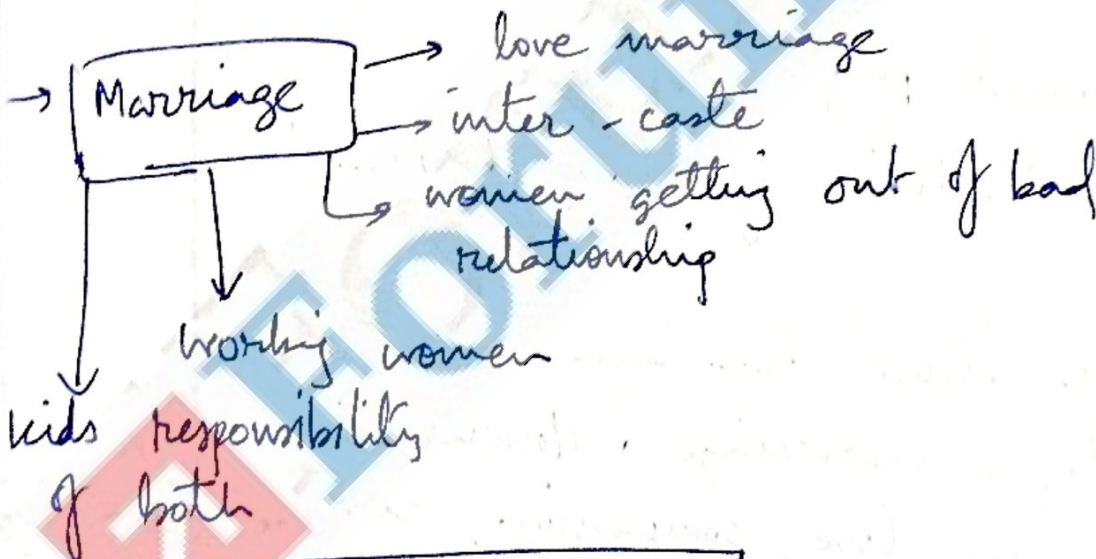 Marriage
love marriage
inter - caste
women getting out of bad
relationship
working women
kids responsibility
of both
Forum